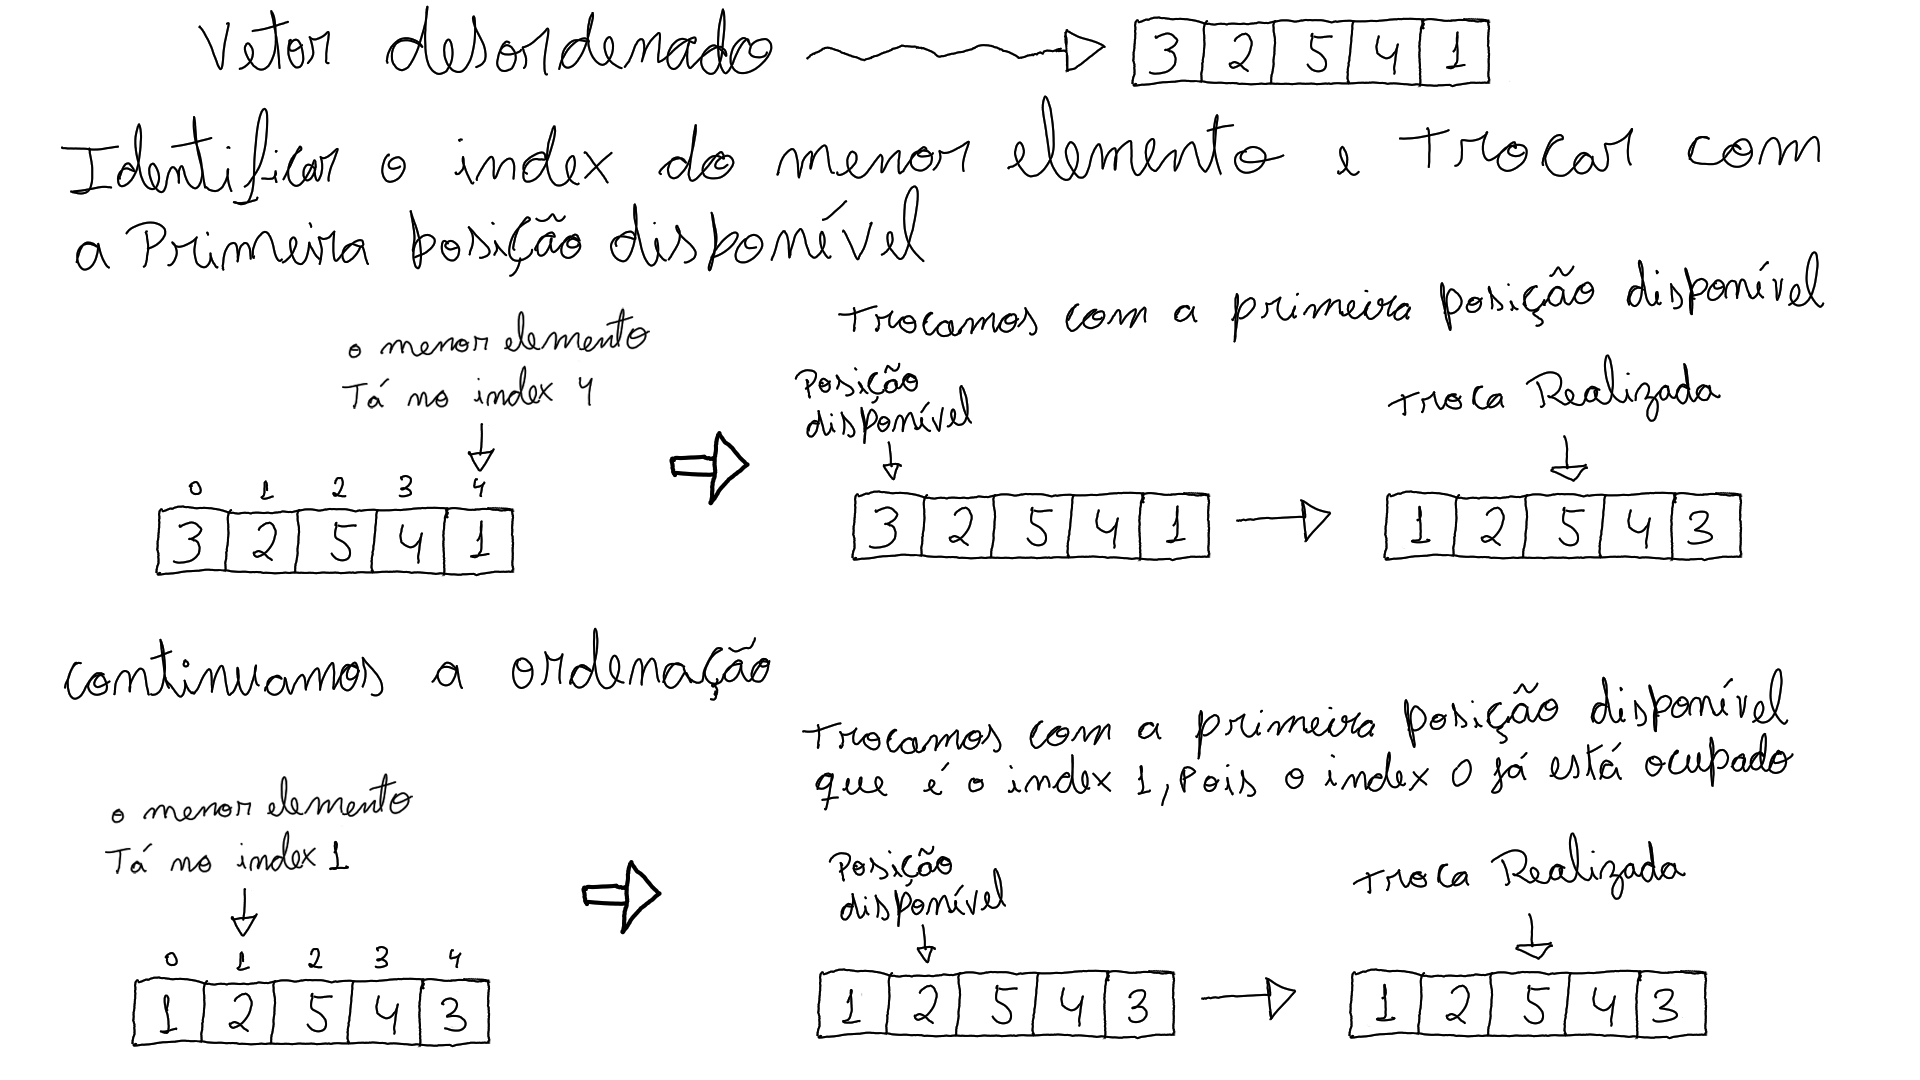 Vetor desordenado
3 2 5 4 1
Identificar o index do menor elemento e Trocar com
a Primeira posição disponível
o menor elemento
Tá no index 4
0 1 2 3 4
3 2 5 4 1
Trocamos com a primeira posição disponível
Posição
disponível
3 2 5 4 1
Troca Realizada
1 2 5 4 3
continuamos a ordenação
o menor elemento
Tá no index 1
0 1 2 3 4
1 2 5 4 3
Trocamos com a primeira posição disponível
que é o index 1, Pois o index 0 já está ocupado
Posição
disponível
1 2 5 4 3
Troca Realizada
1 2 5 4 3